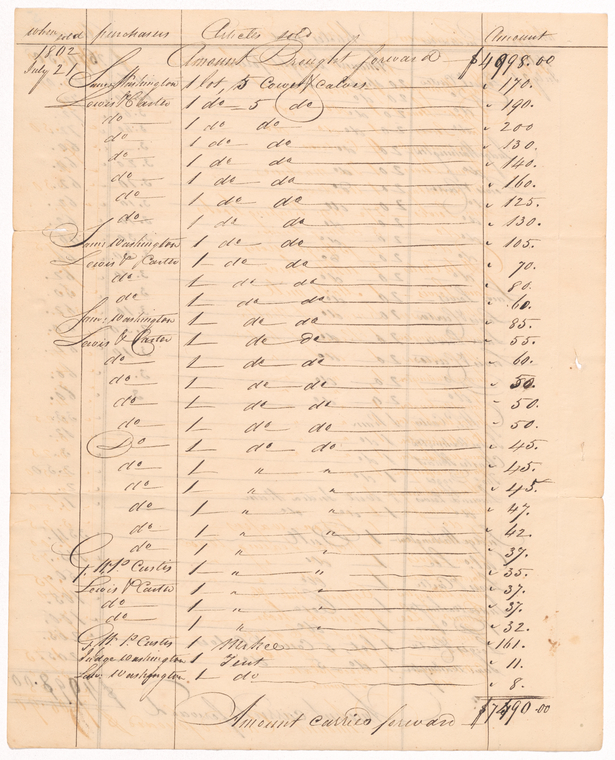 when sold purchasers Articles sold Amount
1802 Amount Brought forward $4998.00
July 21 Law: Washington 1 lot 5 Cows & calves " 170.
Lewis & Carter 1 do 5 do " 190.
do 1 do do " 200
do 1 do do " 130.
do 1 do do " 140.
do 1 do do " 160.
do 1 do do " 125.
do 1 do do " 130.
Law: Washington 1 do do " 105.
Lewis & Carter 1 do do " 70.
do 1 do do " 80.
do 1 do do " 60.
Law: Washington 1 do do " 85.
Lewis & Carter 1 do do " 55.
do 1 do do " 60.
do 1 do do " 50.
do 1 do do " 50.
do 1 do do " 50.
Do 1 do do " 45.
do 1 " " " 45.
do 1 " " " 45.
do 1 " " " 47.
do 1 " " " 42.
do 1 " " " 37.
G. W. P. Custis 1 " " " 35.
Lewis & Carter 1 " " " 37.
do 1 " " " 37.
do 1 " " " 32.
G. W. P. Custis 1 " 161.
Judge Washington 1 Tent " 11.
Law: Washington 1 do " 8.
Amount carried forward $7490.00